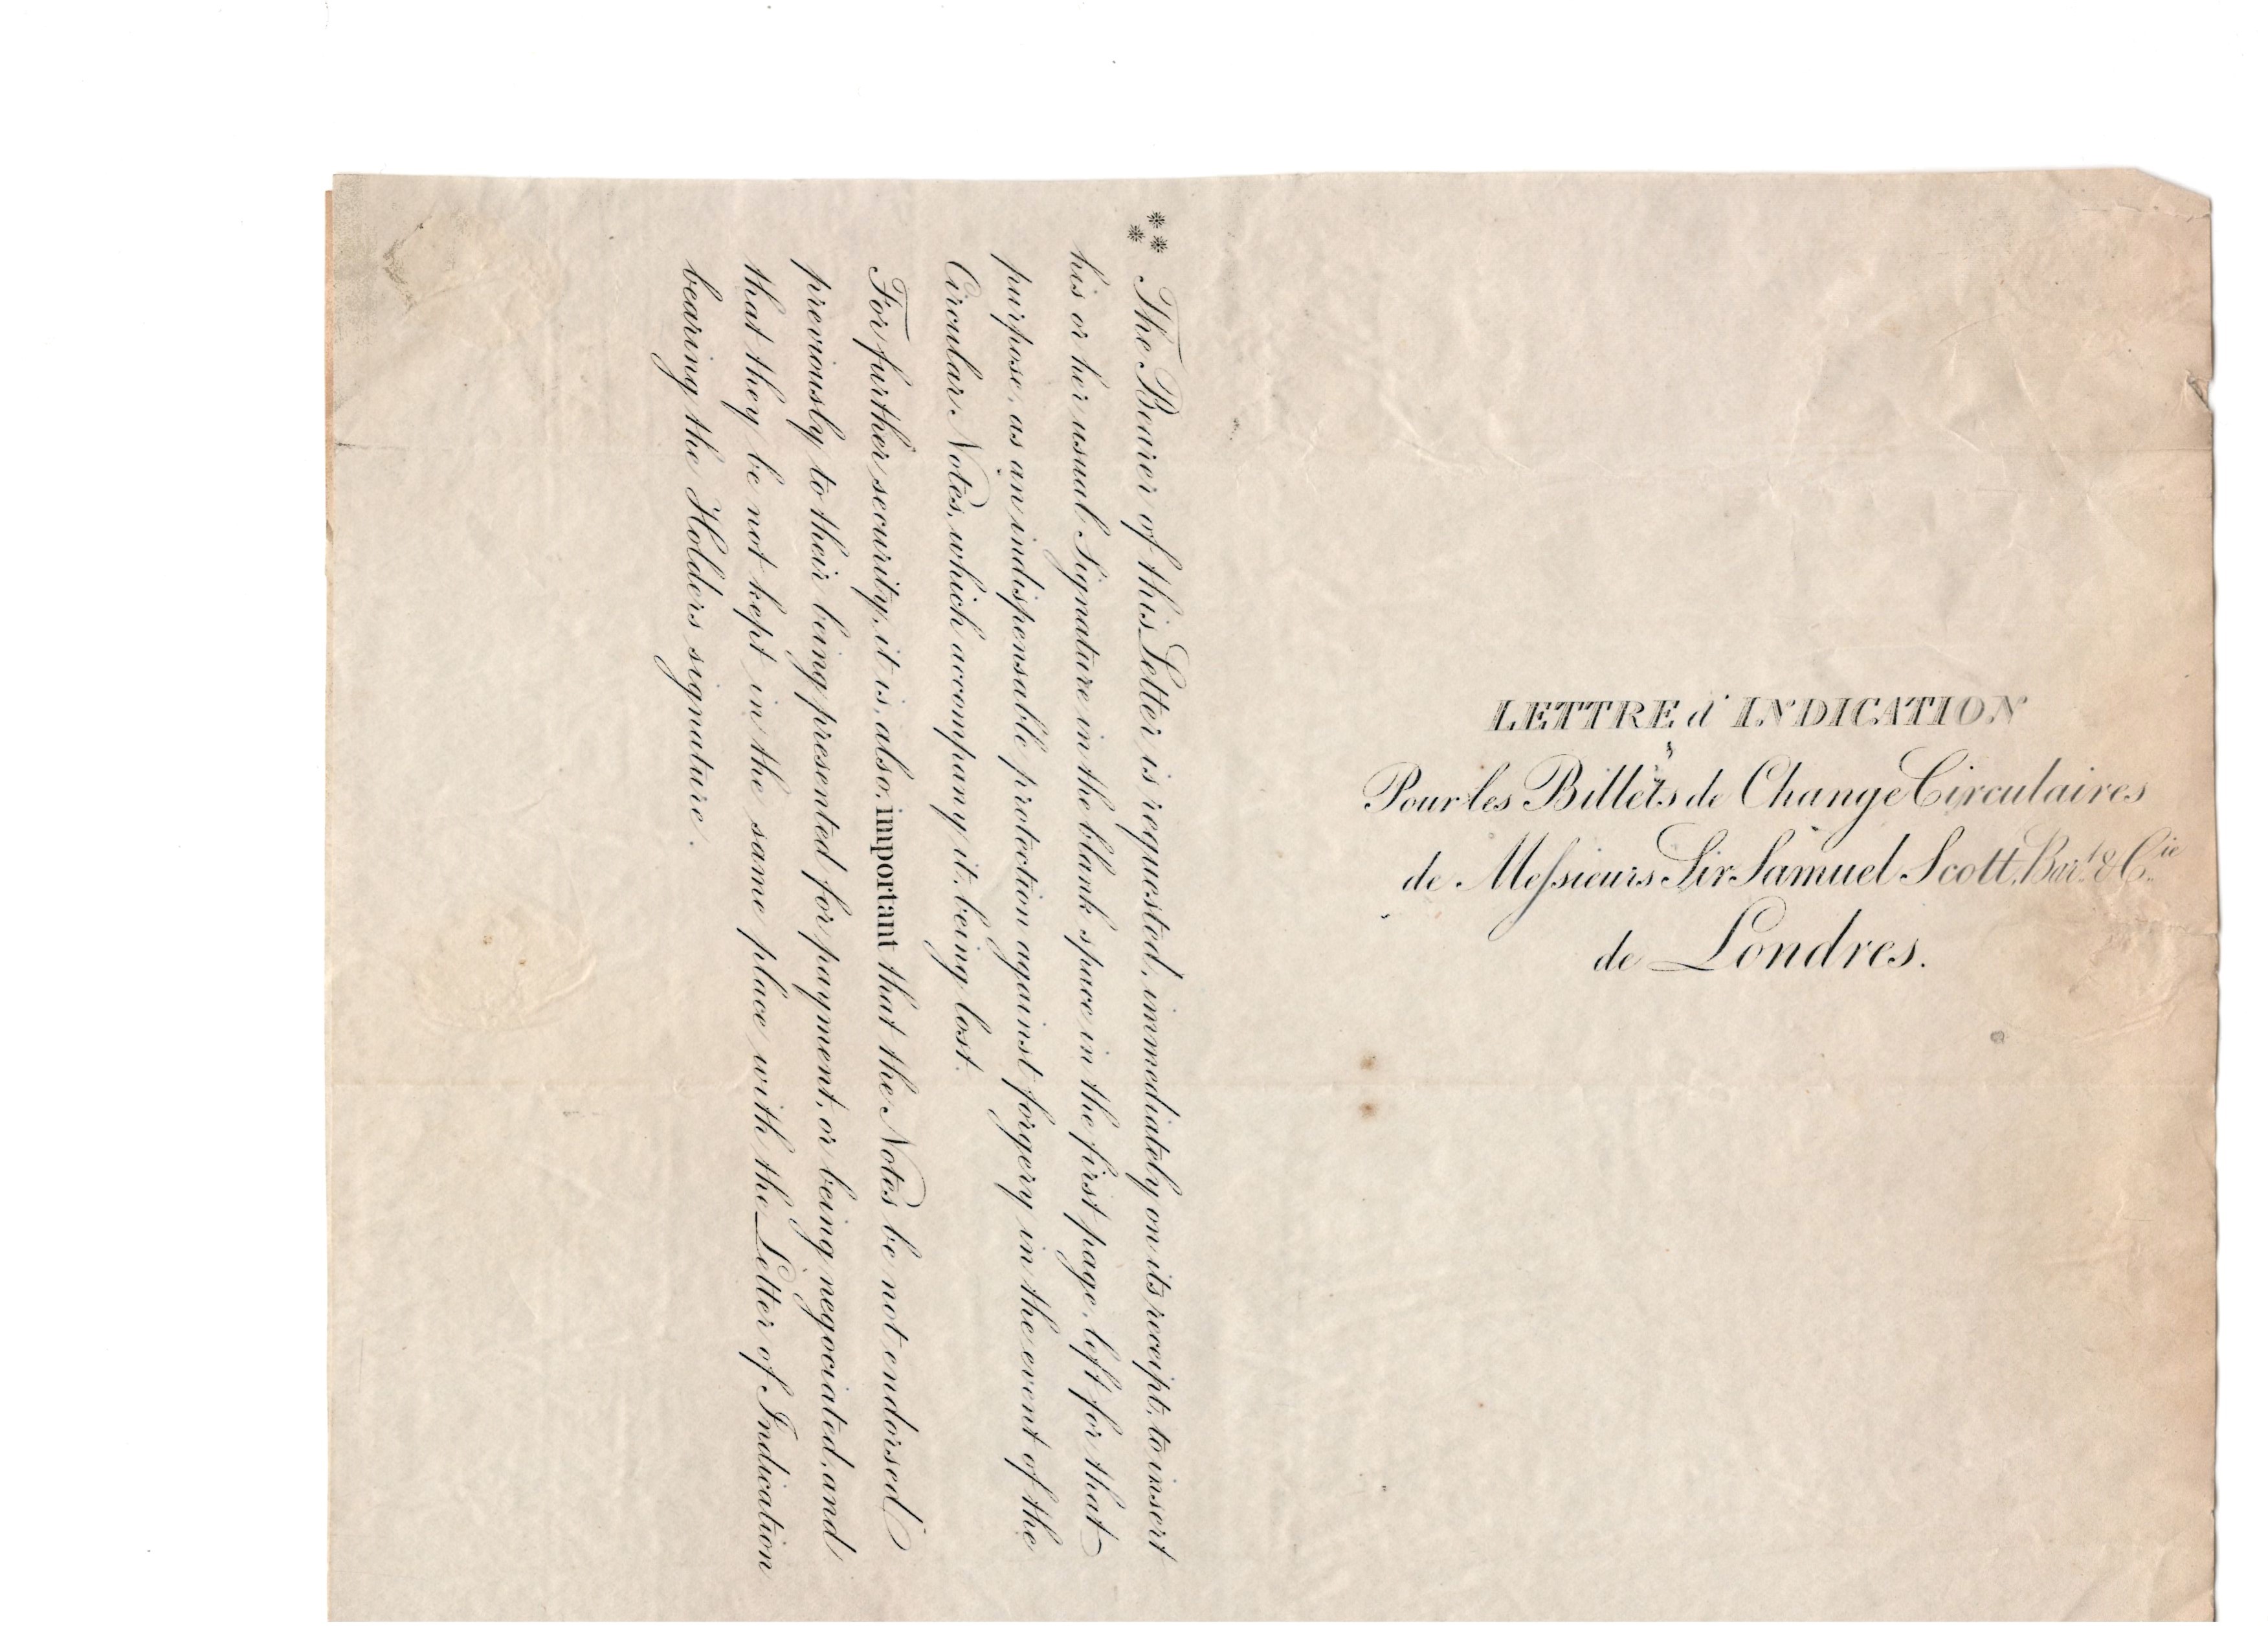 LETTRE d'INDICATION
Pour les Billets de Change Circulaires
de Messieurs Sir Samuel Scott, Bart. & Cie.
de Londres.
The Bearer of this Letter is requested, immediately on its receipt, to insert
his or her usual Signature in the blank space in the first page, left for that
purpose, as an indispensable protection against forgery in the event of the
Circular Notes, which accompany it, being lost.
For further security, it is, also, important that the Notes be not endorsed
previously to their being presented for payment, or being negociated, and
that they be not kept in the same place with the Letter of Indication
bearing the Holders signature.